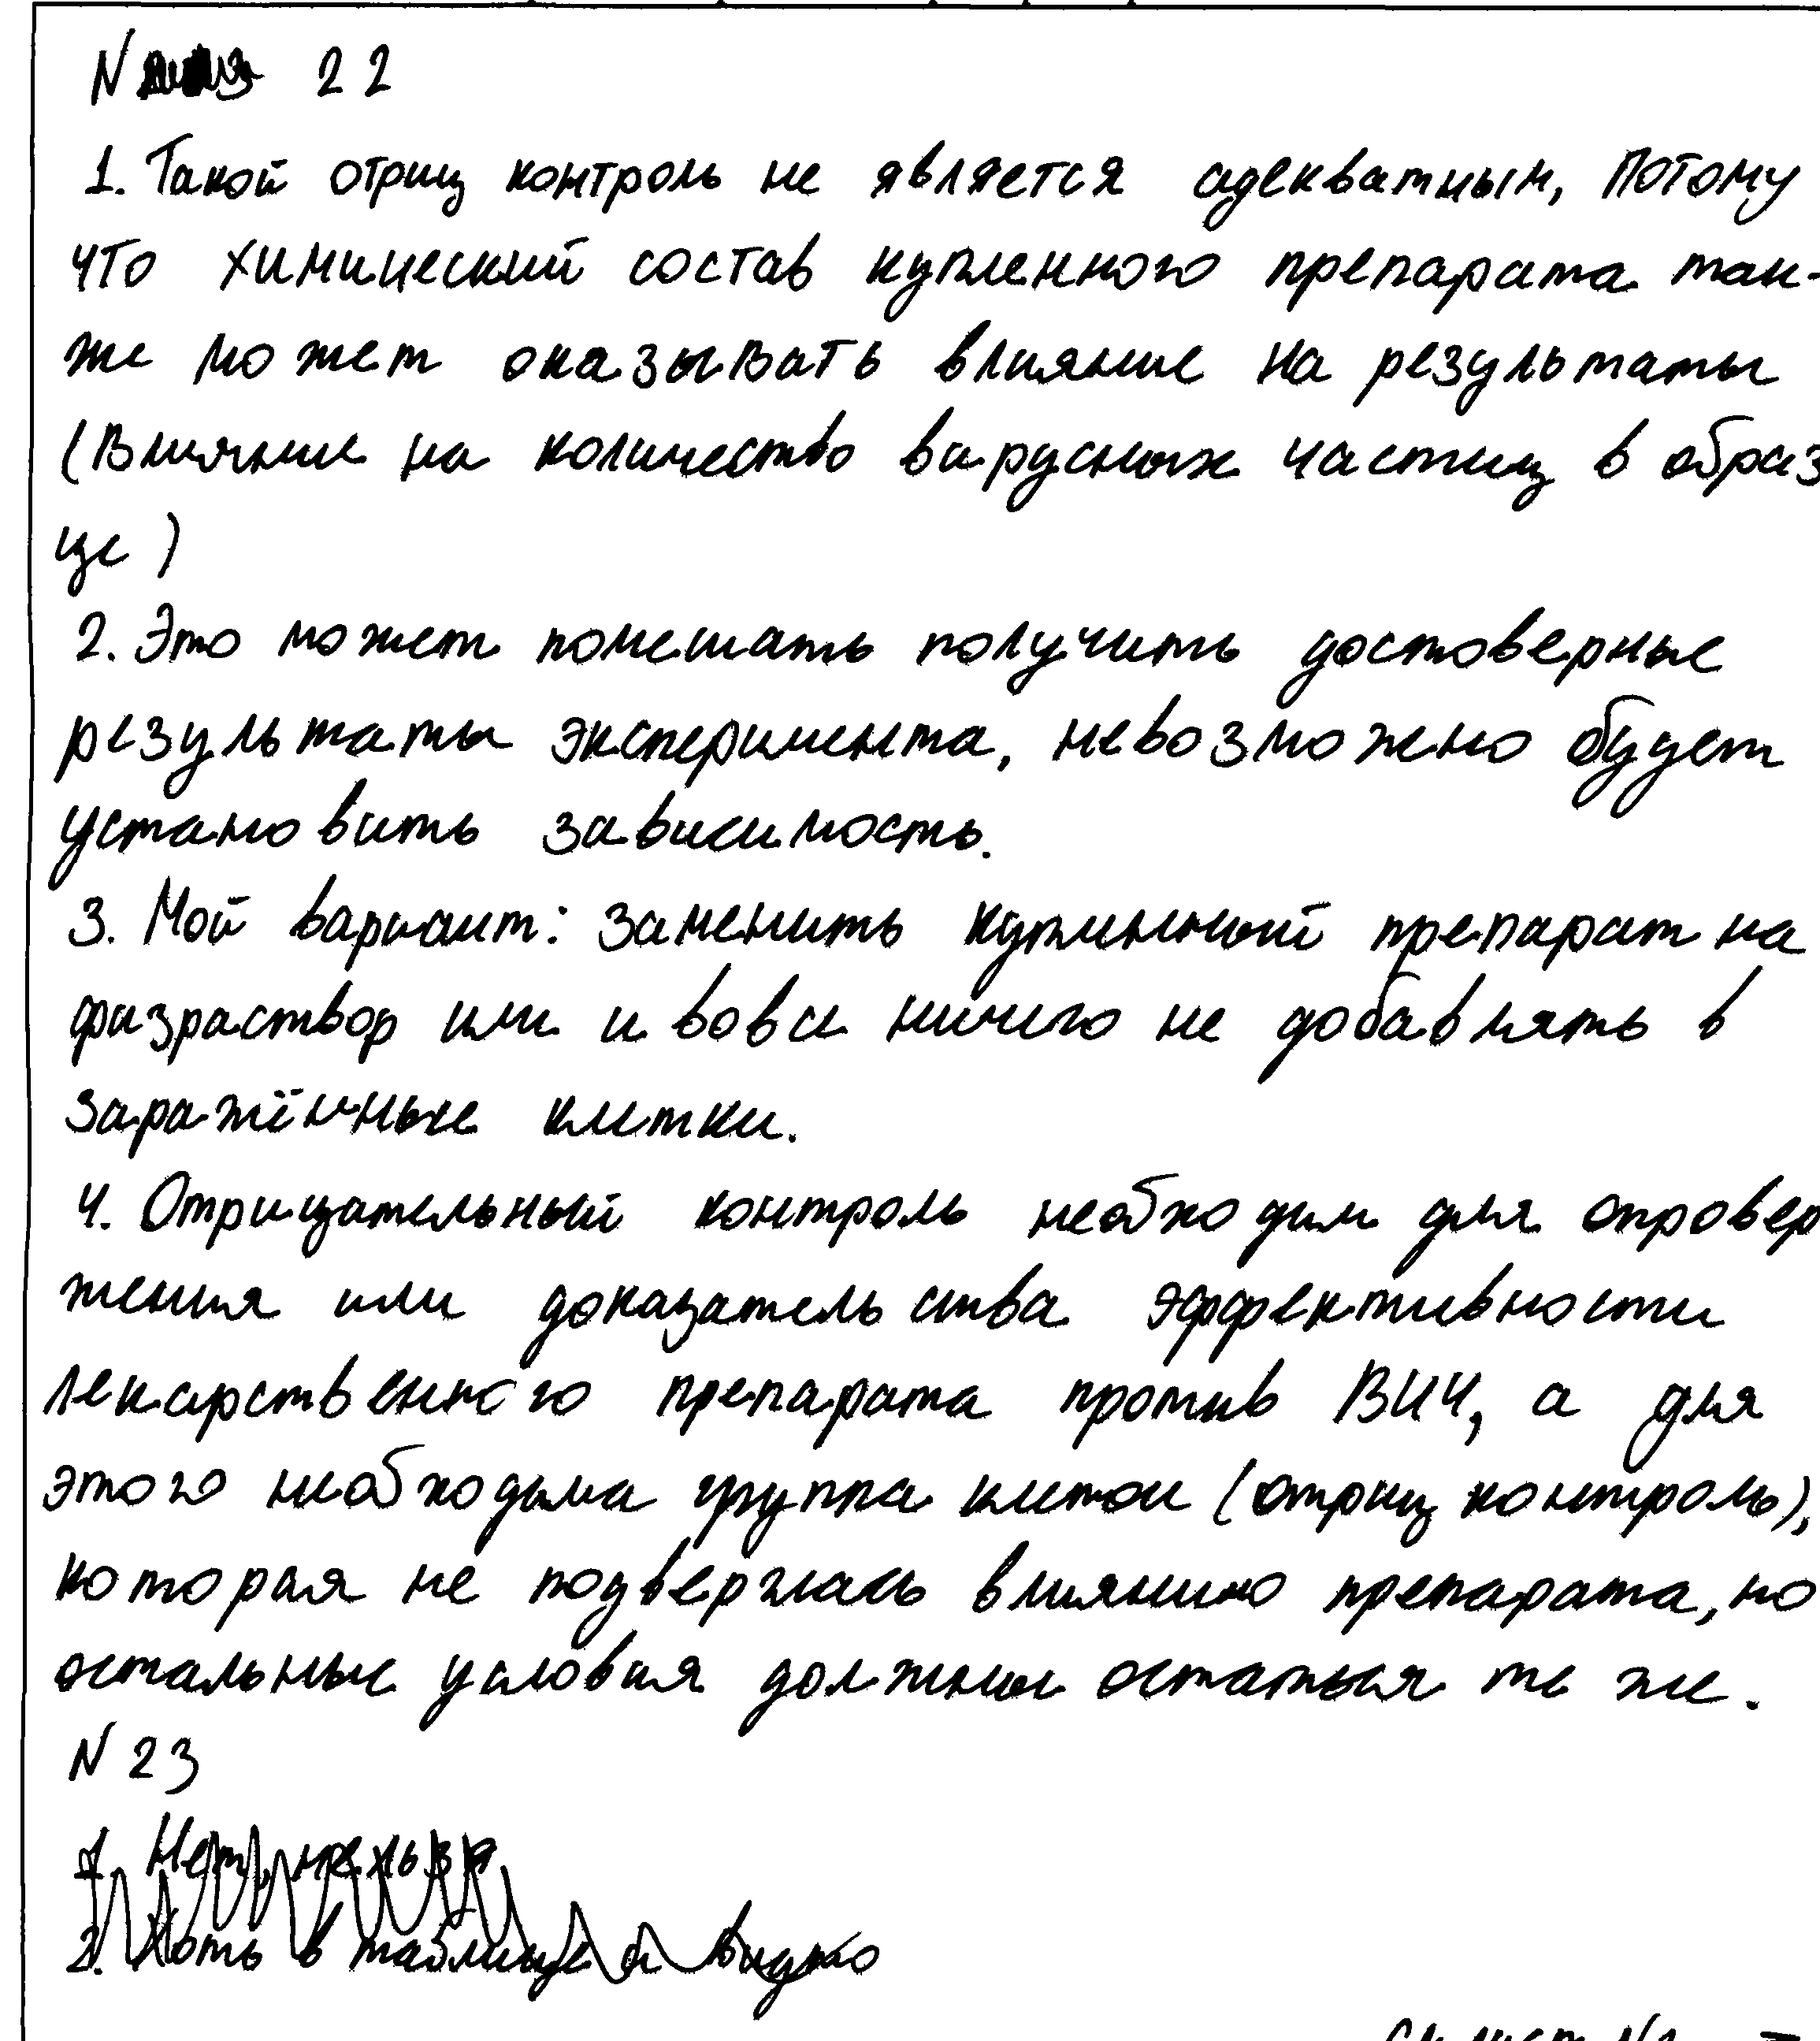 N 22
1. Такой отриц контроль не является адекватным, потому
что химический состав купленного препарата так-
же может оказывать влияние на результаты
(Влияние на количество вирусных частиц в образ
це)
2. Это может помешать получить достоверные
результаты эксперимента, невозможно будет
установить зависимость.
3. Мой вариант: заменить купленный препарат на
физраствор или и вовсе ничего не добавлять в
заражённые клетки.
4. Отрицательный контроль необходим для опровер
жения или доказательства эффективности
лекарственного препарата против ВИЧ, а для
этого необходима группа клеток (отриц контроль),
которая не подверглась влиянию препарата, но
остальные условия должны остаться те же.
N 23
1. Нет, нельзя
2. Хоть в таблице и видно